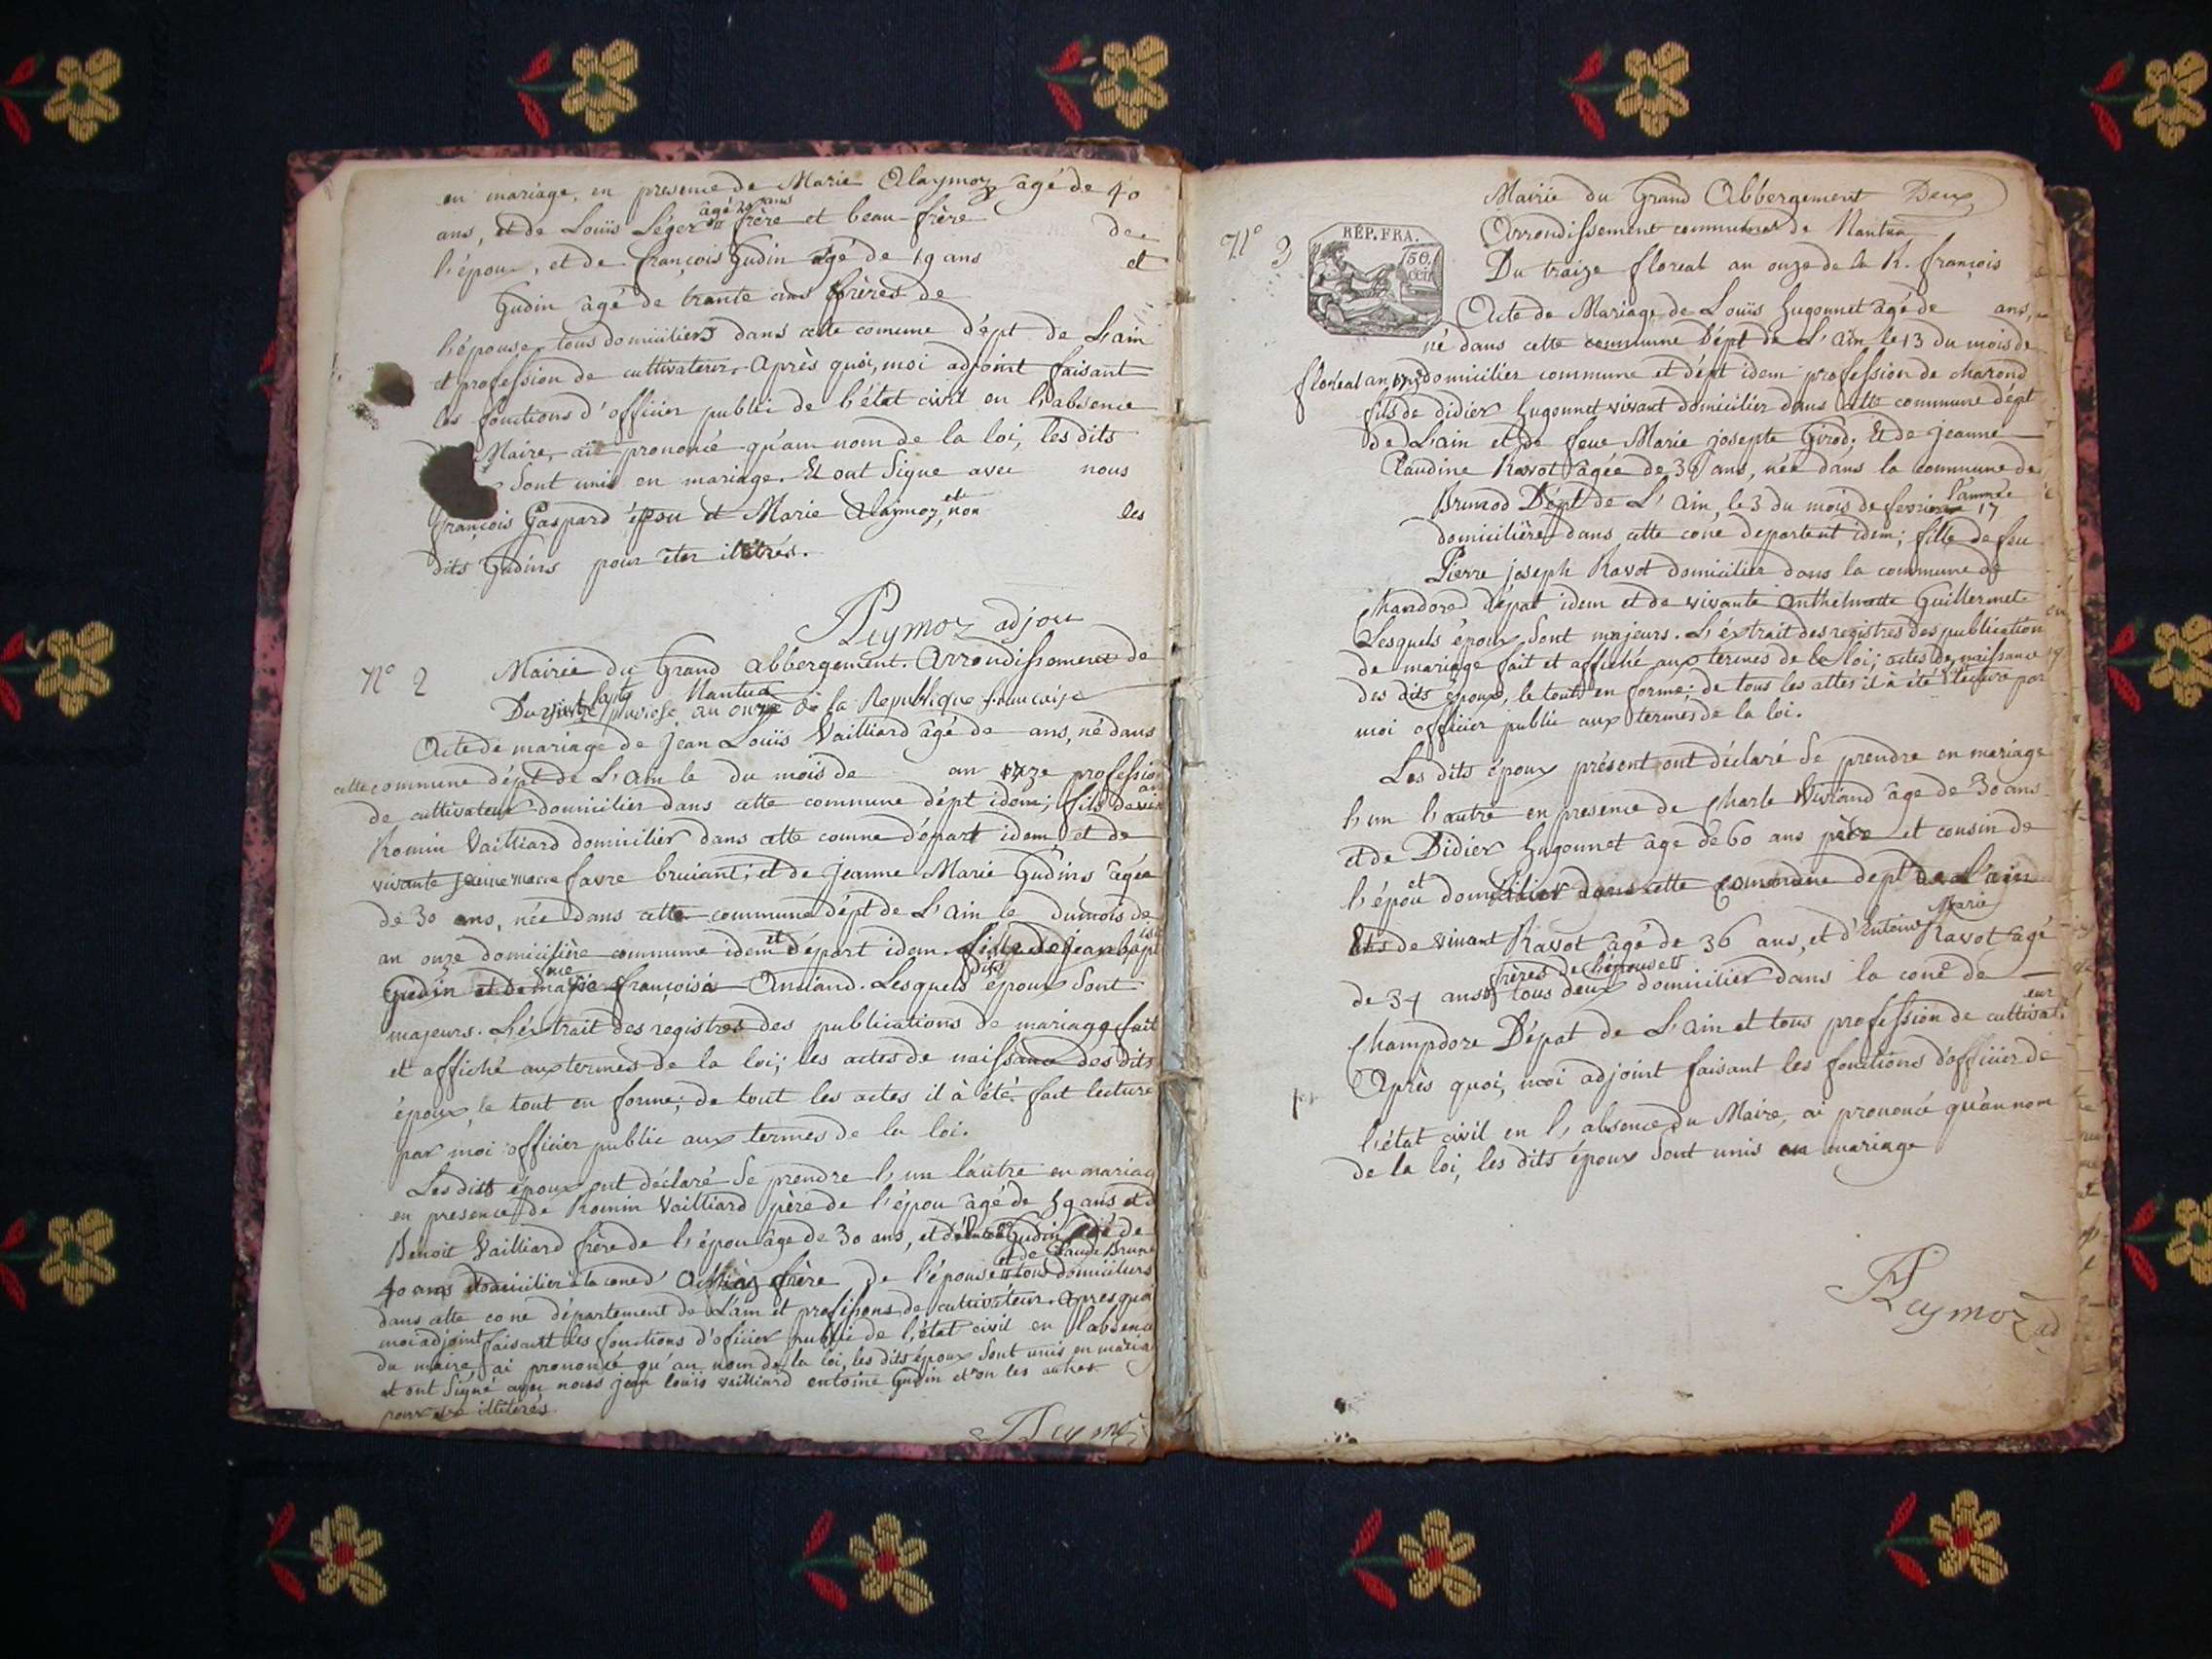 en mariage, en presence de Marie Alaymoz âgé de 40
âgé 29 ans
ans, et de Louïs Léger frère et beau-frère de
l'épou, et de françois Gudin âgé de 19 ans et
Gudin âgé de trante ans frères de
l'épouse tous domiciliers dans cette comune dépt de L'ain
et profession de cultivaterer. Après quoi, moi adjoint faisant
les fonctions d'officier public de l'état civil en l'absence
Maire, ai prononcé qu'au nom de la loi, les dits
sont unis en mariage. Et ont signe avec nous
françois Gaspard épou et Marie Alaymoz, et non les
dits Gudins pour eter illétrés.
Reymoz adjou
N° 2 Mairie du Grand abbergement. Arrondissement de
Nantua
Du vingt sept pluviose an onze de la Republique française
Acte de mariage de Jean Louïs Vailliard âgé de ans, né dans
cette commune dépt de L'ain le du mois de an onze profession
de cultivateur domicilier dans cette commune dépt idem; fils de
Romin Vailliard domicilier dans cette comne départ idem et de
vivante jeanne marie favre bruiant; et de Jeanne Marie Gudins âgée
de 30 ans, née dans cette commune dépt de L'ain le du mois de
an onze domicilière commune idem et départ idem. fille de Jean bapt
Gudin et de marie françoise Amiand. Lesquels dits époux sont
majeurs. L'éxtrait des registres des publications de mariage fait
et affiché aux termes de la loi; les actes de naissance des dits
époux, le tout en forme; de tout les actes il à été fait lecture
par moi officier public aux termes de la loi.
Les dits époux ont déclaré se prendre l'un l'autre en mariag
en presence de Romin Vailliard père de l'épou âgé de 59 ans et d
Benoit Vailliard frère de l'épou âge de 30 ans, et d'Entoine Gudin âgé de
et de Claude Brun
40 ans domicilier à la cone d' frère de l'épouse tous domiciliers
dans cette cone département de L'ain et profissons de cultivateur. Après quoi
moi adjoint faisant les fonctions d'oficier public de l'état civil en l'absence
du maire, ai prononcé qu'au nom de la loi, les dits époux sont unis en maria
et ont signé avec nous jean louïs vailliard entoine Gudin et non les autres
pour etre illiterés
Reymoz
N° 3
RÉP. FRA.
50.
cen
Mairie du Grand Abbergement Deux
Arrondissement communal de Nantua
Du traize floreal an onze de la R. françois
Acte de Mariage de Louïs Hugonnet âgé de ans,
né dans cette commune dépt de L'ain le 13 du mois de
floréal an onze domicilier commune et dépt idem profession de charond
fils de didier Hugonnet vivant domicilier dans cette commune dépt
de L'ain et de feue Marie josepte Girod; Et de jeanne
Claudine Ravot âgée de 36 ans, née dans la commune de
Brunod Dépt de L'Ain, le 3 du mois de fevrier l'année 17
domicilière dans cette coné depertent idem; fille de feu
Pierre joseph Ravot domicilier dans la commune de
Chandored dépat idem et de vivante Anthelmette Guillermet
Lesquels époux sont majeurs. L'éxtrait des registres des publication
de mariage fait et affiché aux termes de la loi; actes de naissance
des dits époux, le tout en forme; de tous les actes il à été fait lecture par
moi officier public aux termes de la loi.
Les dits époux présent ont déclaré se prendre en mariage
l'un l'autre en presence de Charle Viviand âge de 30 ans
et de Didier Hugonnet âge de 60 ans père et cousin de
l'épou et domicilier dans cette commune dept de L'ain
Et de vivant Ravot âgé de 36 ans, et d'Entoine Marie Ravot âgé
frères de l'épouse
de 34 ans tous deux domicilier dans la coné de
Champdore Dépat de L'ain et tous profession de cultivateur
Après quoi, moi adjoint faisant les fonctions d'officier de
l'état civil en l'absence du Maire, ai prononcé qu'au nom
de la loi, les dits époux sont unis en mariage
Reymoz ad